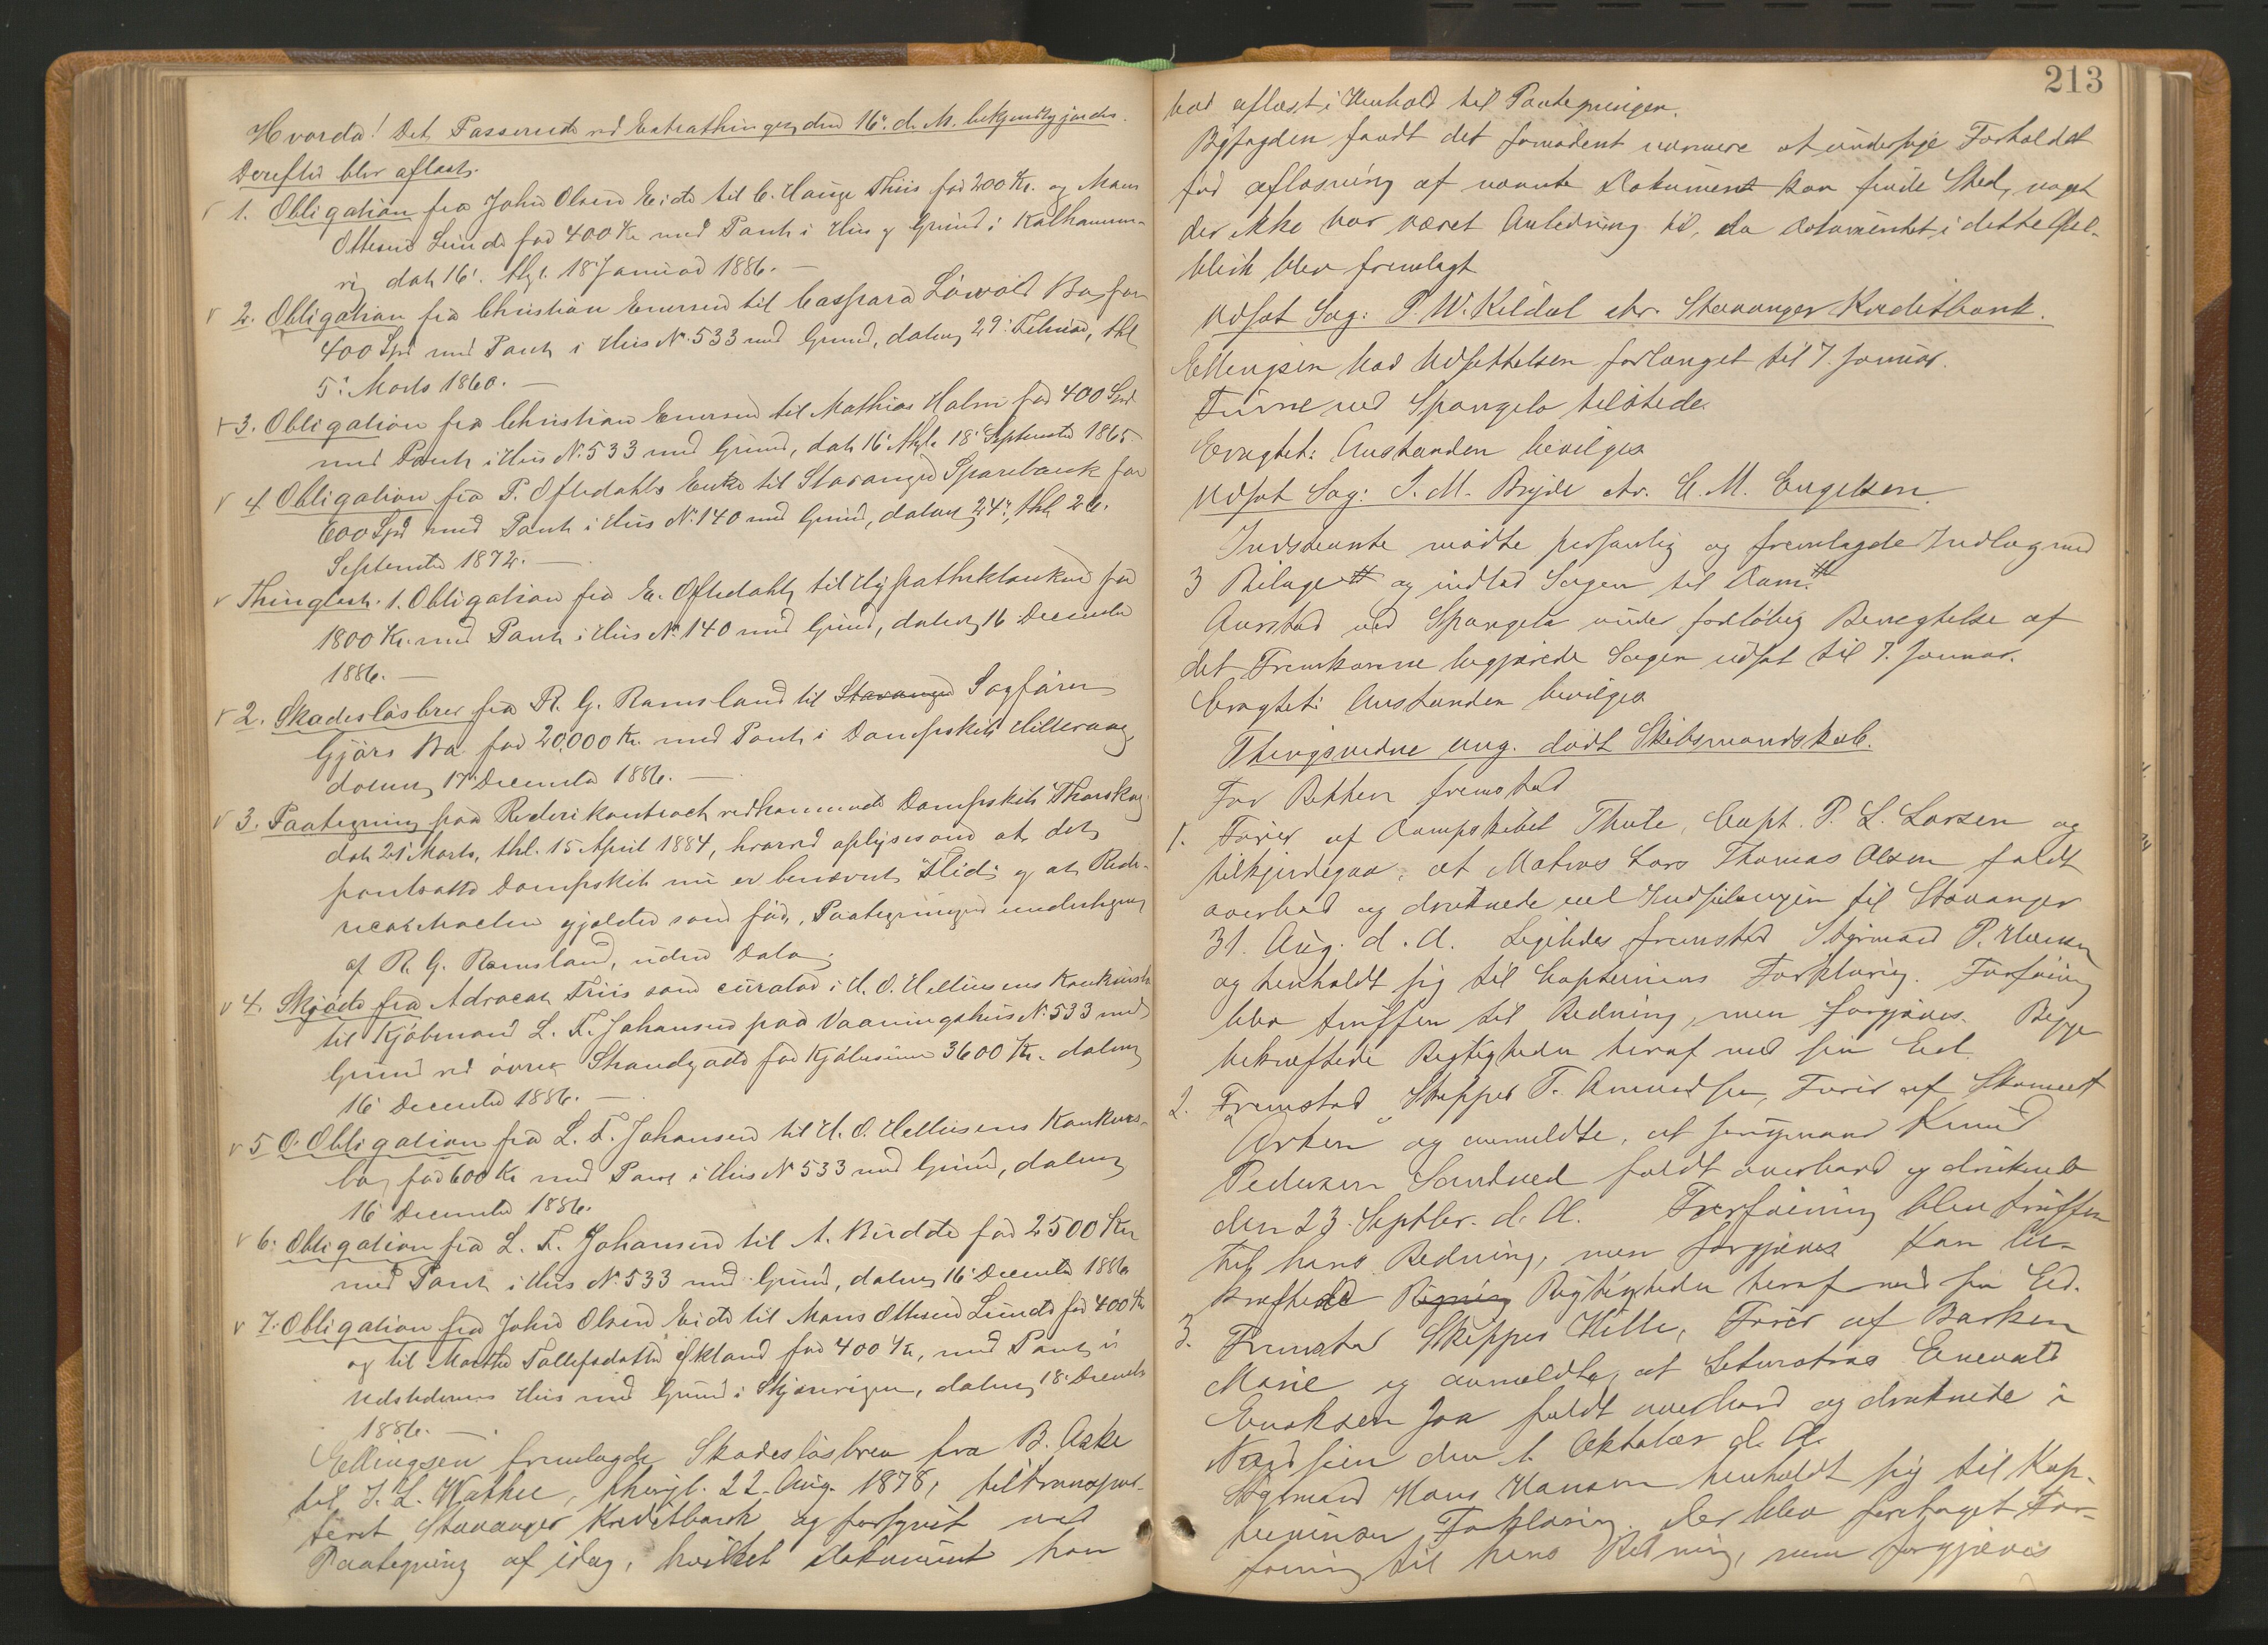 Hvorda! Det Passerede ved Extrathinget den 16' d. M. bekjendtgjordes.
Derefter blev aflæst:
1. Obligation fra John Olsen Eide til C. Hauge Thiis for 200 Kr. og Mons
Ottesen Lunde for 400 Kr med Pant i Hus og Grund i Kalhammer-
vig dat 16' thgl. 18' Januar 1886. —
2. Obligation fra Christian Enersen til Caspara Löwold Bo for
400 Spd med Pant i Hus N. 533 med Grund, dateret 29' Februar, thl
5' Marts 1860. —
3. Obligation fra Christian Enersen til Mathias Holm for 400 Spd
med Pant i Hus N. 533 med Grund, dat 16' thgl. 18' September 1865
4 Obligation fra P. Oftedahls Enke til Stavanger Sparebank for
600 Spd med Pant i Hus N. 140 med Grund, dateret 24', thl 26.
September 1872. —
Thinglæst. 1. Obligation fra E. Oftedahl til Hypothekbanken for
1800 Kr. med Pant i Hus N. 140 med Grund, dateret 16 December
1886. —
2. Skadesløsbrev fra R. G. Ramsland til Stavanger Sagfører
Gjørs Bo for 20,000 Kr. med Pant i Dampskib Hitteraag
dateret 17' December 1886. —
3. Paategning paa Rederikontract vedkommende Dampskib "Thorskog"
dat 21' Marts, thl. 15 April 1884, hvorved oplyses om at det
pantsatte Dampskib nu er benævnt "Flid" og at Rede-
ricontracten gjælder som før, Paategningen undertegnet
af R. G. Ramsland, uden Dato
4. Skjøde fra Advocat Friis som curator i H. O. Helliesens Konkursbo
til Kjøbmand L. F. Johansen paa Vaaningshus N. 533 med
Grund ved øvre Strandgade for Kjøbesum 3600 Kr. dateret
16' December 1886. —
5 O. Obligation fra L. F. Johansen til H. O. Helliesens Konkurs-
bo for 600 Kr med Pant i Hus N 533 med Grund, dateret
16' December 1886.
6. Obligation fra L. F. Johansen til A. Budde for 2500 Kr
med Pant i Hus N. 533 med Grund, dateret 16' December 1886
7. Obligation fra John Olsen Eide til Mons Ottesen Lunde for 400 Kr
og til Marthe Tollefsdatter Økland for 400 Kr, med Pant i
Udstederens Hus med Grund i Skjærvigen, dateret 18' December
1886. —
Ellingsen fremlagde Skadesløsbrev fra B. Aske
til J. L. Wathne, thingl. 22. Aug. 1878, tiltranspor-
teret Stavanger Kreditbank og forsynet med
Paategning af idag, hvilket Dokument han
213
bad aflæst i Henhold til Paategningen.
Byfogden fandt det fornødent nærmere at undersøge Forholdet
før aflæsning af nævnte Dokument kan finde Sted, noget
der ikke har været Anledning til, da Dokumentet i dette Øie-
blik blev fremlagt
Udsat Sag: P. W. Kildal ctr. Stavanger Kreditbank.
Ellingsen bad Udsættelsen forlænget til 7. Januar.
Turne ved Spangelo tilstede.
Eragtet: Anstanden bevilges
Udsat Sag: I. M. Bryde ctr. C. M. Engelsen.
Indstevnte mødte personlig og fremlagde Indlæg med
3 Bilage # og indlod Sagen til Dom. #
Aarstad ved Spangelo under foreløbig Benegtelse af
det Fremkomne begjærede Sagen udsat til 7. Januar.
Eragtet: Anstanden bevilges
Thingsvidne ang. dødt Skibsmandskab.
For Retten fremstod
1. Fører af Dampskibet Thule, Capt. P. L. Larsen og
tilkjendegav, at Matros Lars Thomas Olsen faldt
overbord og druknede ved Indseilingen til Stavanger
31. Aug. d. A. Ligeledes fremstod Styrmand P. Hansen
og henholdt sig til Capteinens Forklaring. Forføining
blev truffen til Redning, men forgjæves. Begge
bekræftede Rigtigheden heraf med sin Eed.
2. Fremstod Skipper T. Amundsen, Fører af Skonnert
"Arken" og anmeldte, at Jungmand Knud
Pedersen Sandved faldt overbord og druknede
den 23. Septbr. d. A. Forføining blev truffen
til hans Redning, men forgjæves Han be-
kræftede Rigtig Rigtigheden heraf med sin Ed.
3. Fremstod Skipper Hille, Fører af Barken
Marie og anmeldte, at Letmatros Enevald
Enoksen Joa faldt overbord og druknede i
Nordsjøen den 1. Oktober d. A.
Styrmand Hans Hansen henholdt sig til Kap-
teinens Forklaring. Der blev foretaget For-
føining til hans Redning, men forgjæves